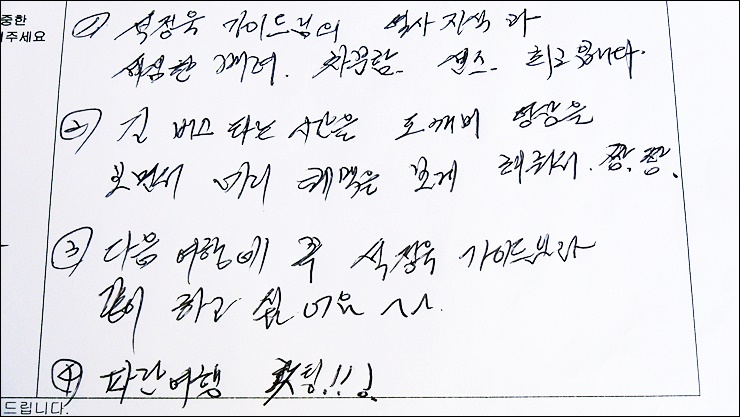 중한
겨주세요
① 석정욱 가이드님의 역사 지식과
세심한 배려. 차분함. 센스. 최고입니다.
② 긴 버스 타는 시간을 도깨비 영상을
보면서 미리 예맥을 보게 해줘서. 짱. 짱.
③ 다음 여행에 꼭 석정욱 가이드분과
같이 하고 싶네요 ^^.
④ 파란여행 화팅!!!
드립니다.